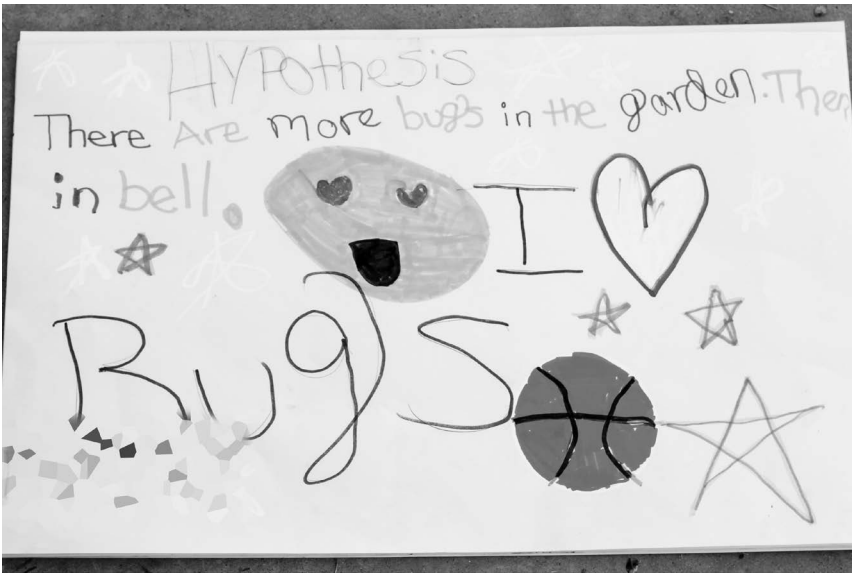 HYPothesis
There Are more bugs in the garden. Then
in bell.
I
Bugs